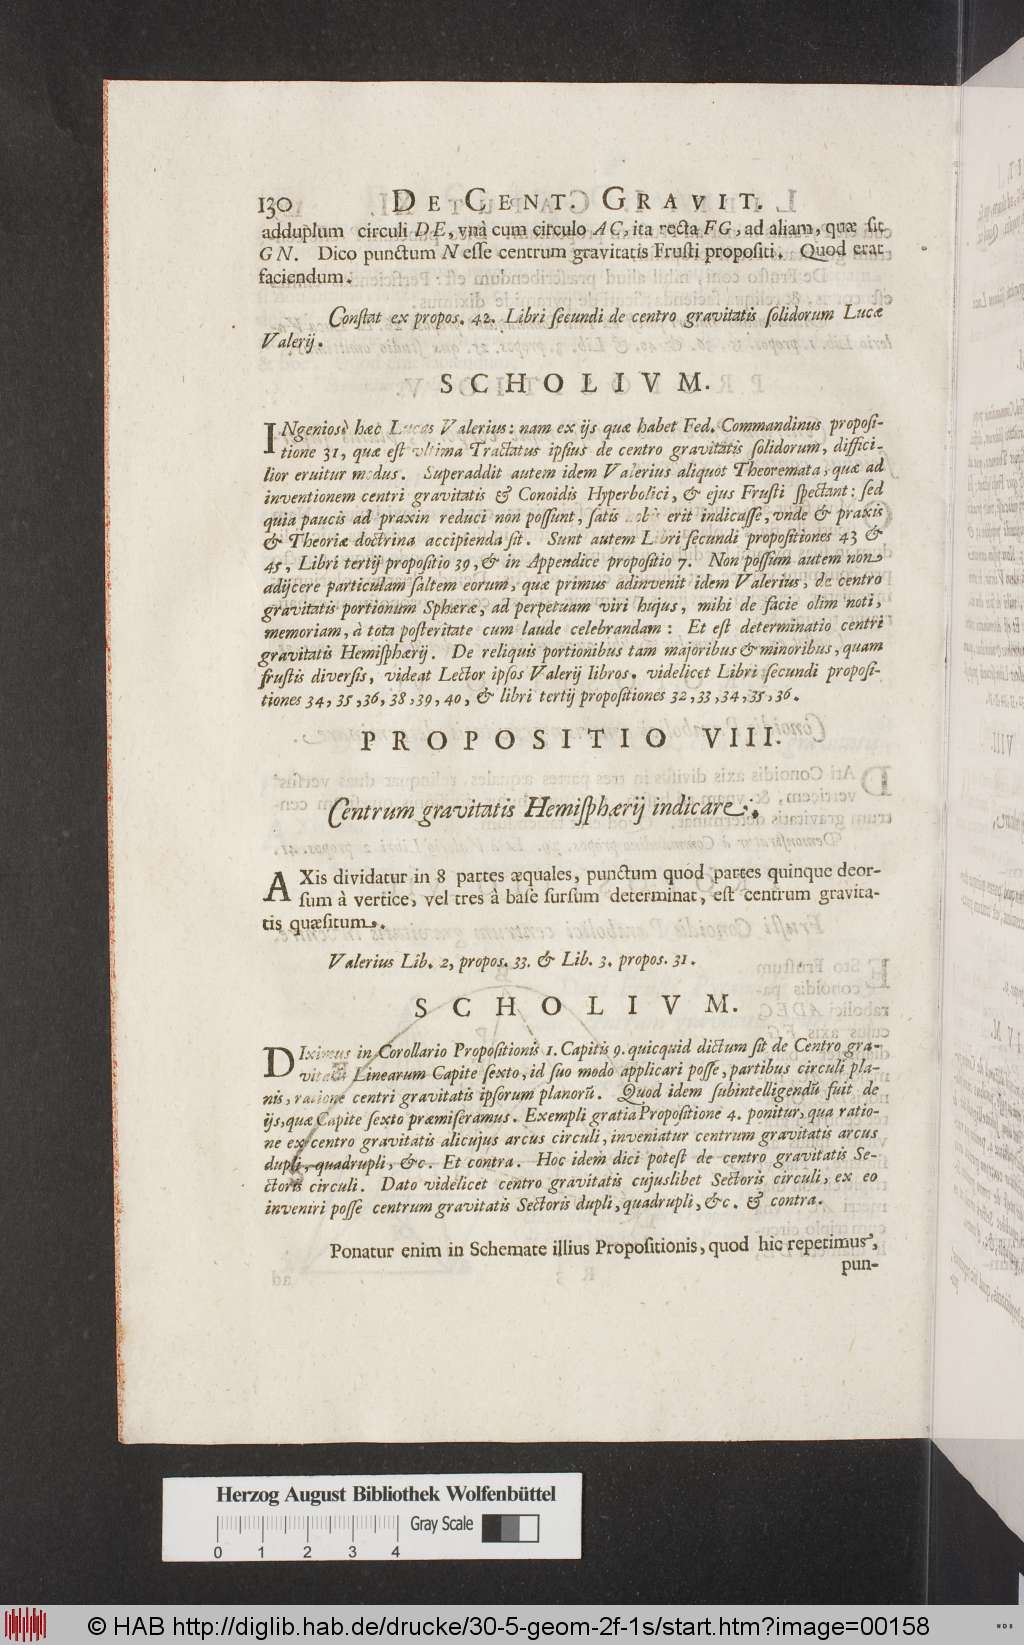 130 DE CENT. GRAVIT.
adduplum circuli DE, vnà cum circulo AC, ita recta FG, ad aliam, quæ sit
GN. Dico punctum N esse centrum gravitatis Frusti propositi. Quod erat
faciendum.
Constat ex propos. 42. Libri secundi de centro gravitatis solidorum Lucæ
Valerij.
SCHOLIVM.
INgeniosè hæc Lucas Valerius: nam ex ijs quæ habet Fed. Commandinus proposi-
tione 31, quæ est vltima Tractatus ipsius de centro gravitatis solidorum, diffici-
lior eruitur modus. Superaddit autem idem Valerius aliquot Theoremata, quæ ad
inventionem centri gravitatis & Conoidis Hyperbolici, & ejus Frusti spectant: sed
quia paucis ad praxin reduci non possunt, satis nobis erit indicasse, vnde & praxis
& Theoriæ doctrina accipienda sit. Sunt autem Libri secundi propositiones 43 &
45, Libri tertij propositio 39, & in Appendice propositio 7. Non possum autem non
adijcere particulam saltem eorum, quæ primus adinvenit idem Valerius, de centro
gravitatis portionum Sphæræ, ad perpetuam viri hujus, mihi de facie olim noti,
memoriam, à tota posteritate cum laude celebrandam: Et est determinatio centri
gravitatis Hemisphærij. De reliquis portionibus tam majoribus & minoribus, quam
frustis diversis, videat Lector ipsos Valerij libros. videlicet Libri secundi proposi-
tiones 34, 35, 36, 38, 39, 40, & libri tertij propositiones 32, 33, 34, 35, 36.
PROPOSITIO VIII.
Centrum gravitatis Hemisphærij indicare.
AXis dividatur in 8 partes æquales, punctum quod partes quinque deor-
sum à vertice, vel tres à base sursum determinat, est centrum gravita-
tis quæsitum.
Valerius Lib. 2, propos. 33. & Lib. 3. propos. 31.
SCHOLIVM.
DIximus in Corollario Propositionis 1. Capitis 9. quicquid dictum sit de Centro gra-
vitatis Linearum Capite sexto, id suo modo applicari posse, partibus circuli pla-
nis, ratione centri gravitatis ipsorum planorũ. Quod idem subintelligendũ fuit de
ijs, quæ Capite sexto præmiseramus. Exempli gratia Propositione 4. ponitur, qua ratio-
ne ex centro gravitatis alicujus arcus circuli, inveniatur centrum gravitatis arcus
dupli, quadrupli, &c. Et contra. Hoc idem dici potest de centro gravitatis Se-
ctoris circuli. Dato videlicet centro gravitatis cujuslibet Sectoris circuli, ex eo
inveniri posse centrum gravitatis Sectoris dupli, quadrupli, &c. & contra.
Ponatur enim in Schemate illius Propositionis, quod hic repetimus,
pun-
Herzog August Bibliothek Wolfenbüttel
0 1 2 3 4 Gray Scale
© HAB http://diglib.hab.de/drucke/30-5-geom-2f-1s/start.htm?image=00158